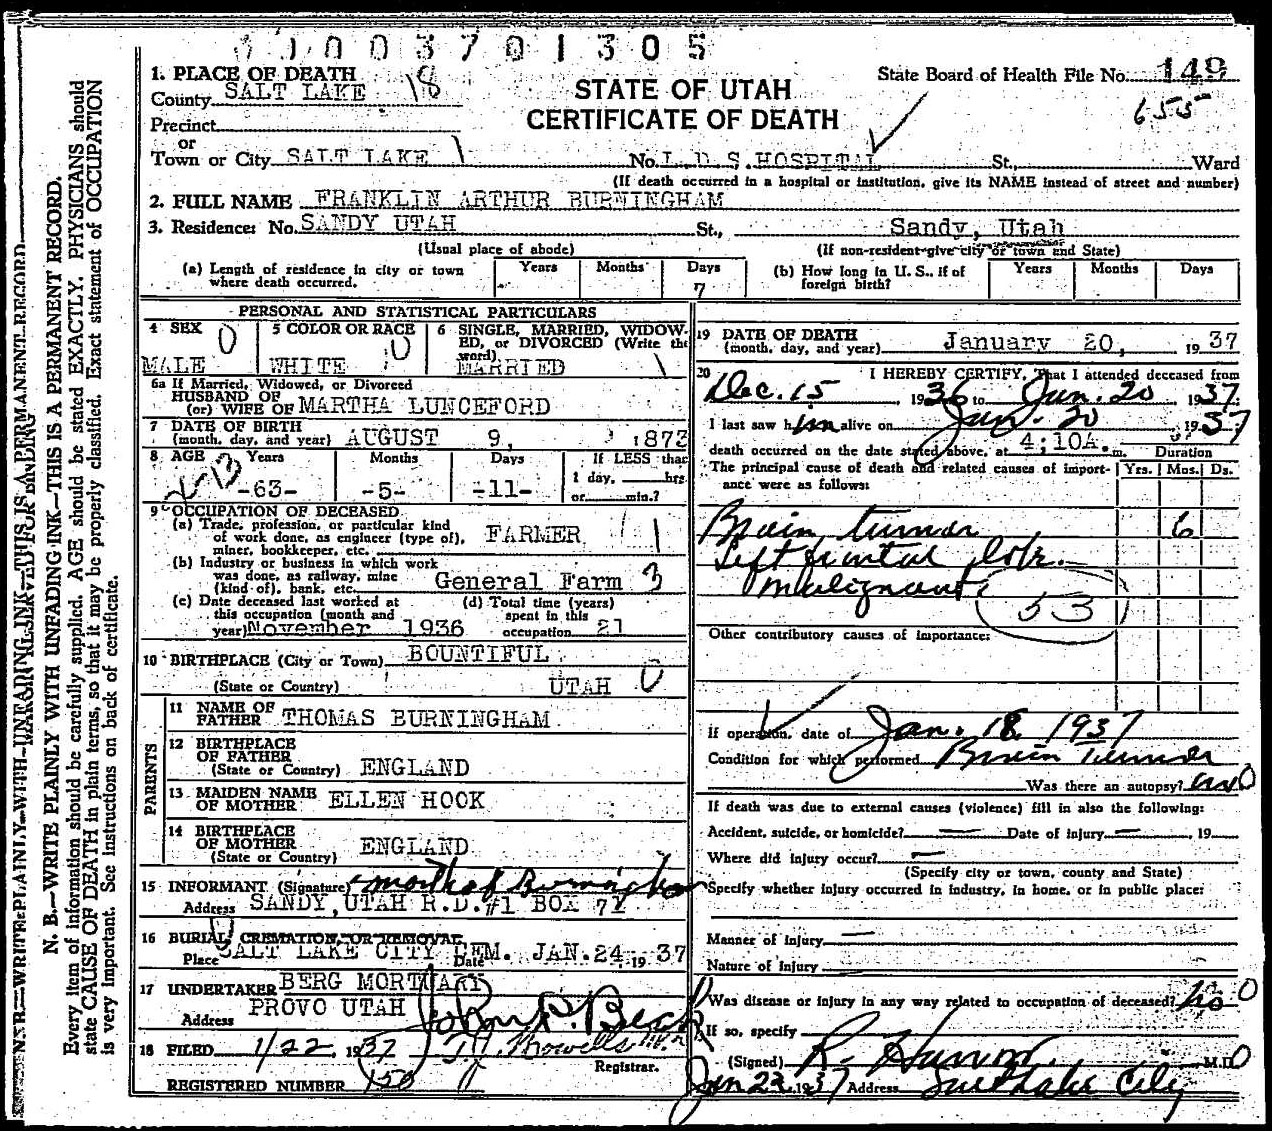 003701305
1. PLACE OF DEATH
County SALT LAKE 18
Precinct
or
Town or City SALT LAKE
STATE OF UTAH
CERTIFICATE OF DEATH
State Board of Health File No. 149
655
No. L.D.S. HOSPITAL St., Ward
(If death occurred in a hospital or institution, give its NAME instead of street and number)
2. FULL NAME FRANKLIN ARTHUR BURNINGHAM
3. Residence: No. SANDY UTAH St., Sandy, Utah
(Usual place of abode) (If non-resident give city or town and State)
(a) Length of residence in city or town where death occurred. Years Months Days 7
(b) How long in U. S., if of foreign birth? Years Months Days
PERSONAL AND STATISTICAL PARTICULARS
4 SEX 0
MALE
5 COLOR OR RACE 0
WHITE
6 SINGLE, MARRIED, WIDOWED, or DIVORCED (Write the word)
MARRIED
6a If Married, Widowed, or Divorced
HUSBAND OF
(or) WIFE OF MARTHA LUNCEFORD
7 DATE OF BIRTH
(month, day, and year) AUGUST 9, 1873
8 AGE Years Months Days If LESS than
-63- -5- -11- 1 day, hrs.
or min.?
9 OCCUPATION OF DECEASED
(a) Trade, profession, or particular kind
of work done, as engineer (type of), FARMER 1
miner, bookkeeper, etc.
(b) Industry or business in which work
was done, as railway, mine
(kind of), bank, etc. General Farm 3
(c) Date deceased last worked at
this occupation (month and
year) November 1936
(d) Total time (years)
spent in this
occupation 21
10 BIRTHPLACE (City or Town) BOUNTIFUL
(State or Country) UTAH 0
PARENTS
11 NAME OF
FATHER THOMAS BURNINGHAM
12 BIRTHPLACE
OF FATHER
(State or Country) ENGLAND
13 MAIDEN NAME
OF MOTHER ELLEN HOOK
14 BIRTHPLACE
OF MOTHER
(State or Country) ENGLAND
15 INFORMANT (Signature) Burningham
Address SANDY, UTAH R.D. #1 BOX 71
16 BURIAL, CREMATION, OR REMOVAL
Place SALT LAKE CITY CEM. Date JAN. 24, 1937
17 UNDERTAKER BERG MORTUARY
Address PROVO UTAH
18 FILED 1/22, 1937
Registrar.
REGISTERED NUMBER 150
19 DATE OF DEATH
(month, day, and year) January 20, 1937
20 I HEREBY CERTIFY, That I attended deceased from
Dec. 15, 1936 to Jan. 20, 1937
I last saw him alive on Jan. 20 1937
death occurred on the date stated above, at 4:10A.m. Duration
The principal cause of death and related causes of importance were as follows: Yrs. Mos. Ds.
Brain tumor 6
Left frontal lobe
Malignant 53
Other contributory causes of importance:
If operation, date of Jan. 18, 1937
Condition for which performed Brain Tumor
Was there an autopsy? no 0
If death was due to external causes (violence) fill in also the following:
Accident, suicide, or homicide? — Date of injury —, 19
Where did injury occur? —
(Specify city or town, county and State)
Specify whether injury occurred in industry, in home, or in public place:
Manner of injury —
Nature of injury
Was disease or injury in any way related to occupation of deceased? No 0
If so, specify
(Signed) R. M.D. 0
Jan 22, 1937 Address Salt Lake City
N. B.—WRITE PLAINLY WITH UNFADING INK—THIS IS A PERMANENT RECORD.
Every item of information should be carefully supplied. AGE should be stated EXACTLY. PHYSICIANS should
state CAUSE OF DEATH in plain terms, so that it may be properly classified. Exact statement of OCCUPATION
is very important. See instructions on back of certificate.